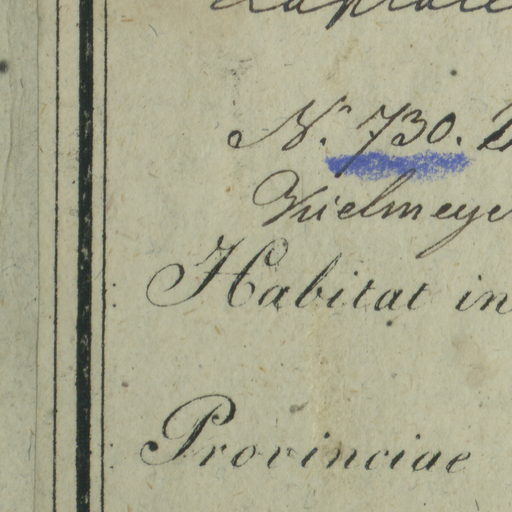 N.º 730.
Vuelmeye
Habitat in
Provinciae